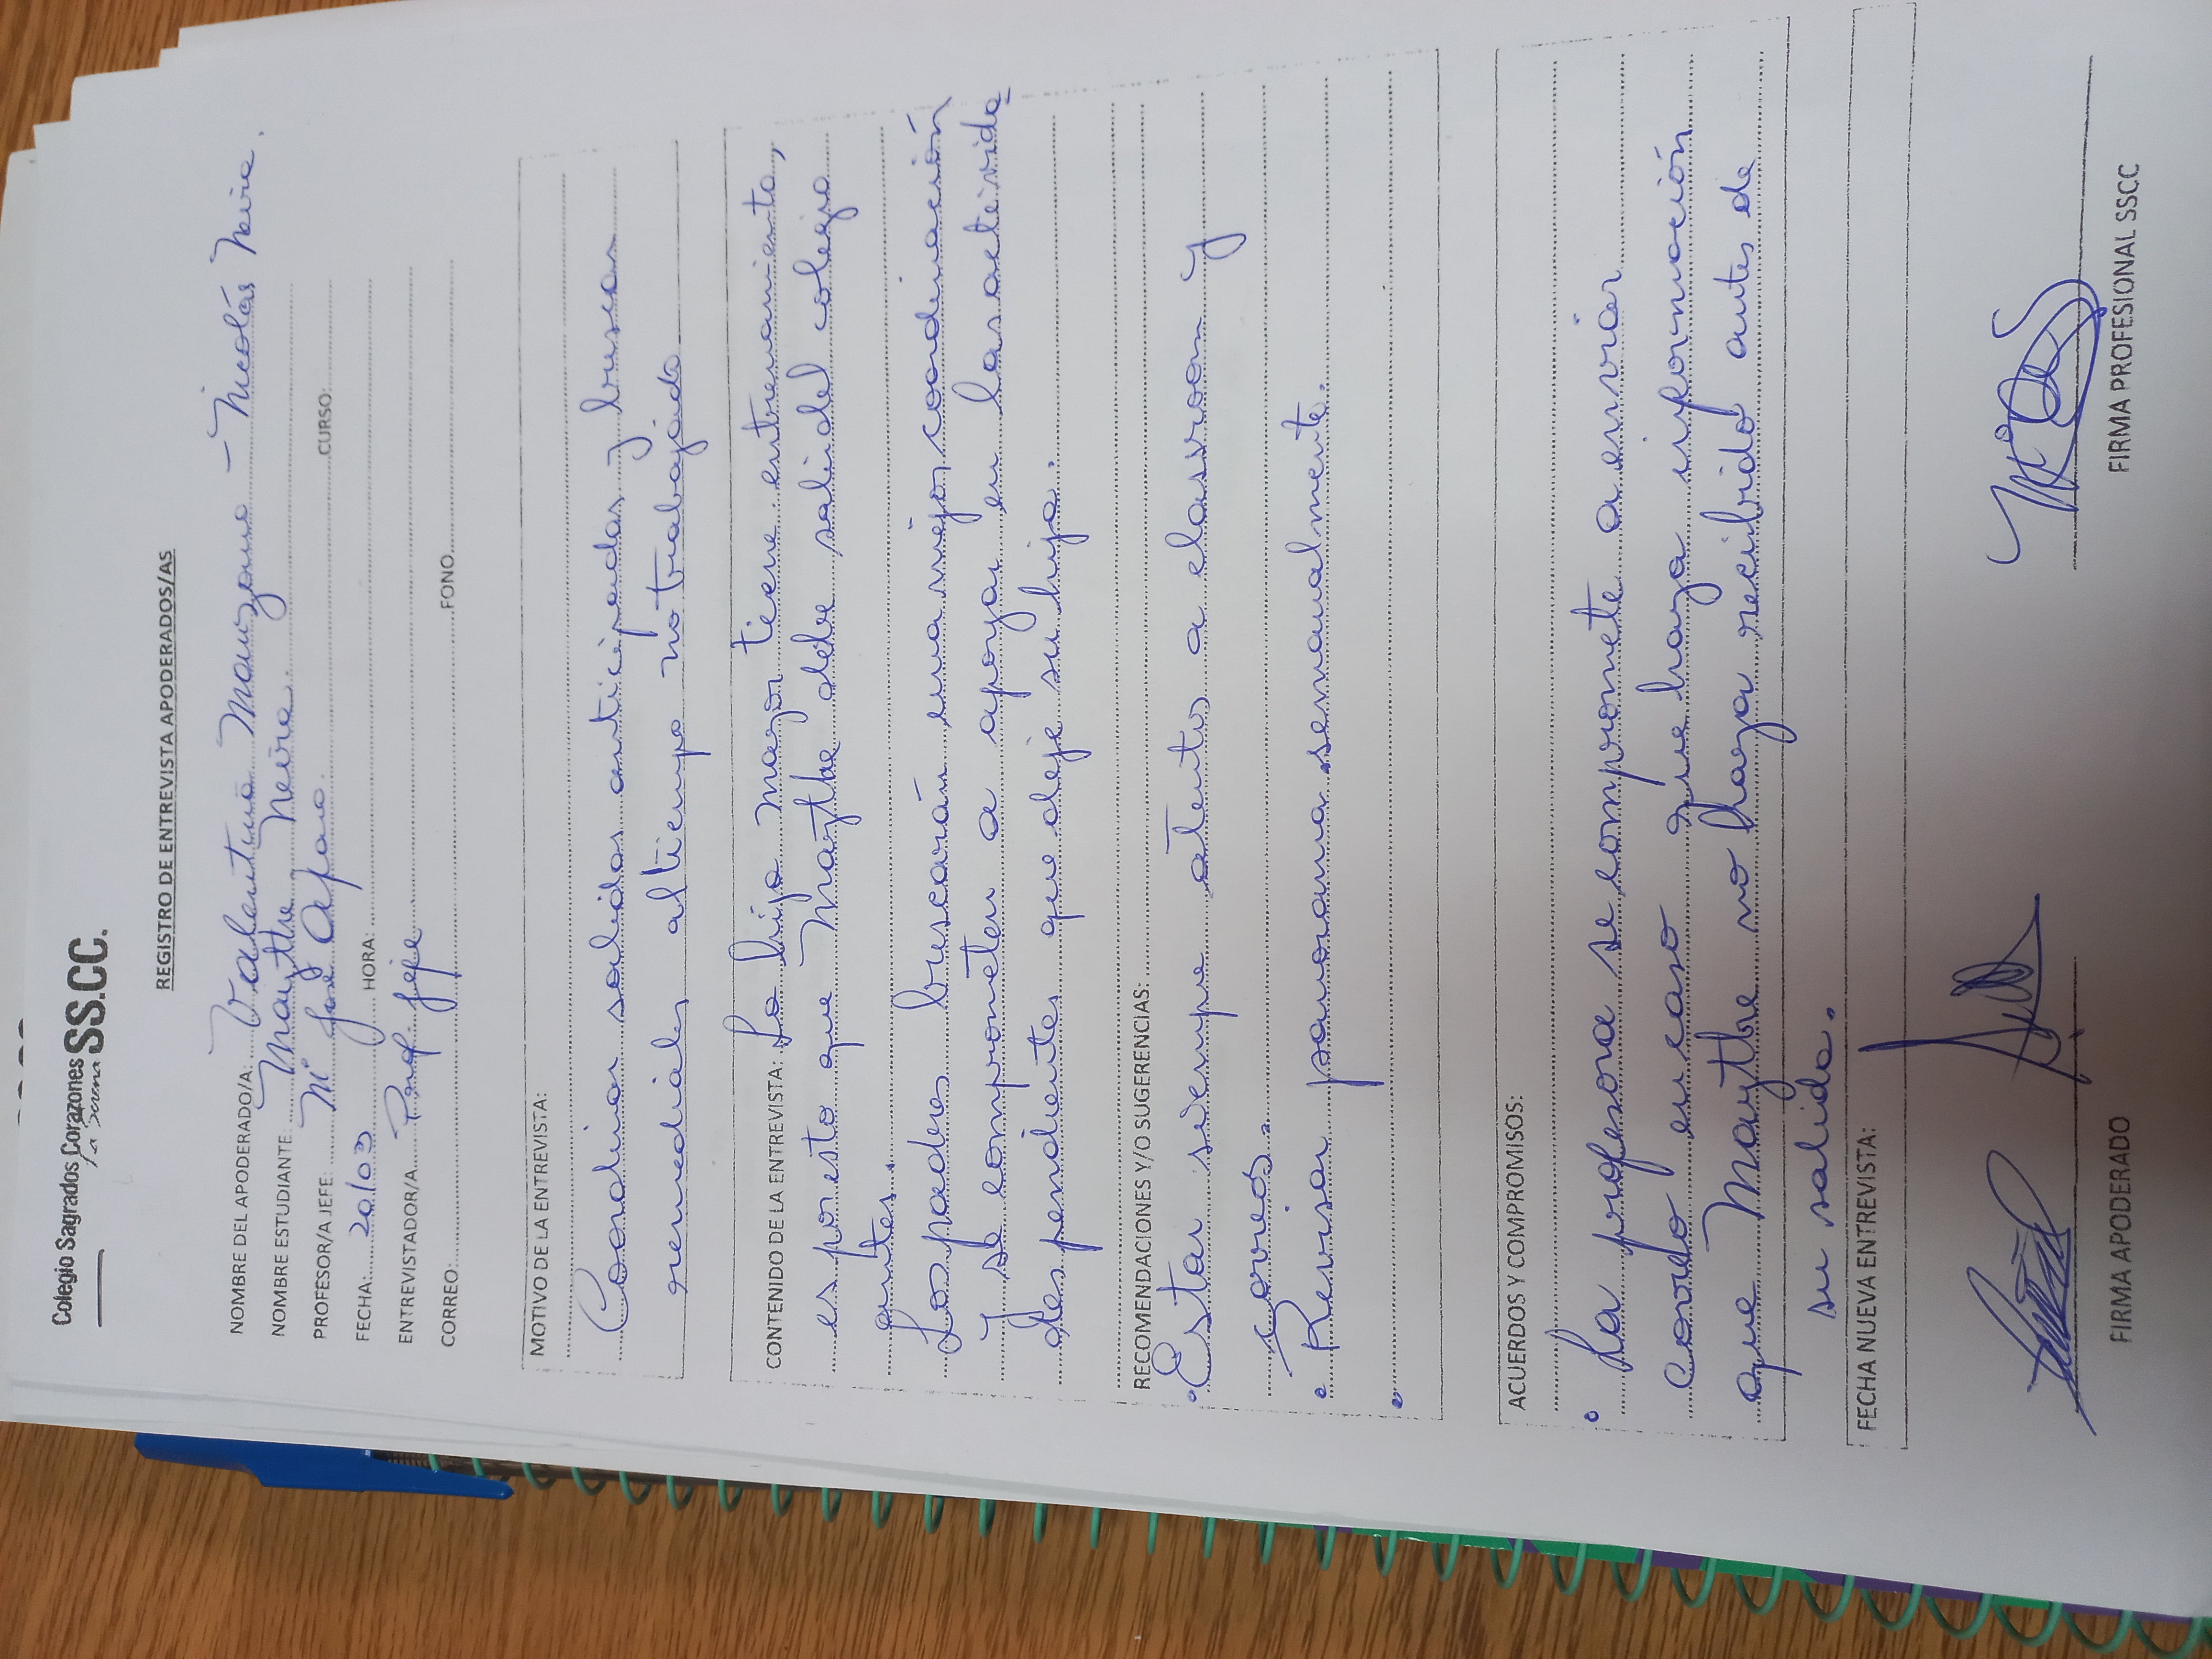 Colegio Sagrados Corazones SS.CC.
La Serena
REGISTRO DE ENTREVISTA APODERADOS/AS
NOMBRE DEL APODERADO/A: Valentina Manzano - Nicolás Neira.
NOMBRE ESTUDIANTE Maythe Neira.
PROFESOR/A JEFE: Mª José Alfaro. CURSO:
FECHA: 20/03 HORA:
ENTREVISTADOR/A Prof. Jefe
CORREO: FONO
MOTIVO DE LA ENTREVISTA:
Coordinar salidas anticipadas y buscar
remediales al tiempo no trabajado
CONTENIDO DE LA ENTREVISTA: La hija mayor tiene entrenamiento,
es por esto que Maythe debe salir del colegio
antes.
Los padres buscarán una mejor coordinación
y se comprometen a apoyar en las activida
des pendientes que deje su hija.
RECOMENDACIONES Y/O SUGERENCIAS:
• Estar siempre atentos a classroom y
correos.
• Revisar panorama semanalmente.
•
ACUERDOS Y COMPROMISOS:
• La profesora se compromete a enviar
correo en caso que haya información
que Maythe no haya recibido antes de
su salida.
FECHA NUEVA ENTREVISTA:
FIRMA APODERADO FIRMA PROFESIONAL SSCC